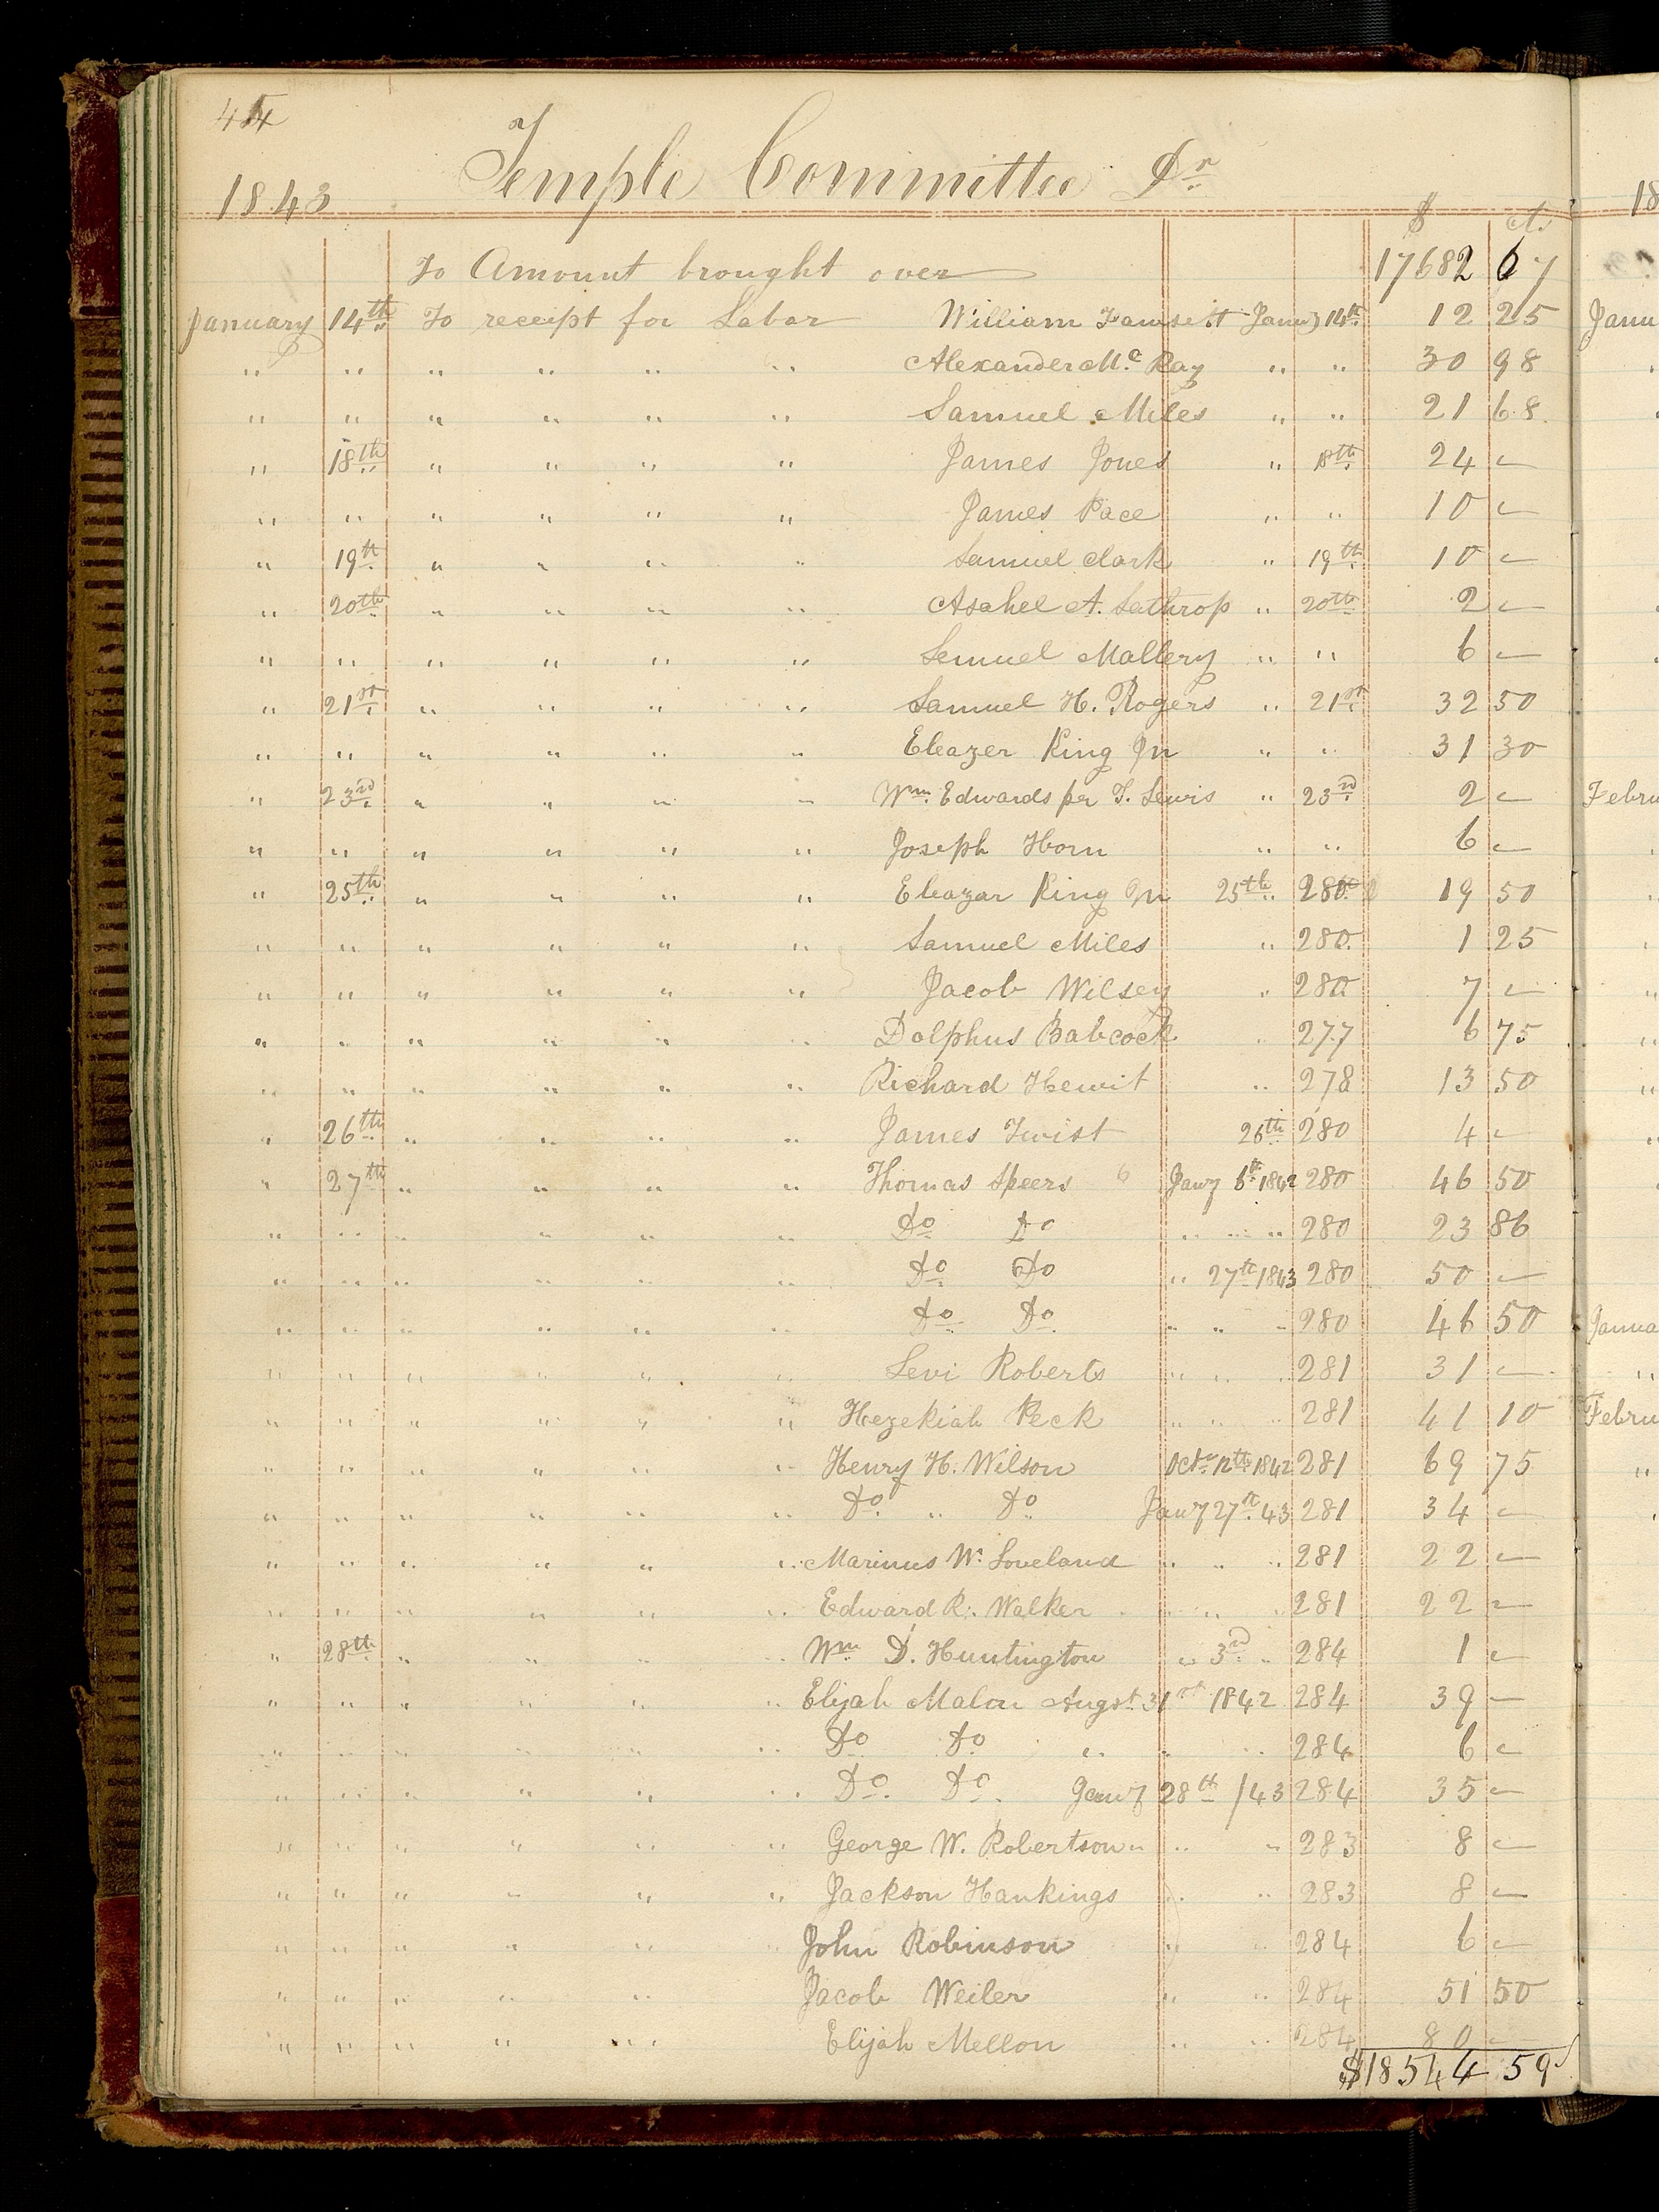 44
Temple Committee Dr
1843
$ ct.
To Amount brought over 17682 67
January 14th To receipt for Labor William Fawsett Janry 14th 12 25
" " " " " " Alexander Mc Ray " " 30 98
" " " " " " Samuel Miles " " 21 68
" 18th " " " " James Jones " 18th 24 —
" " " " " " James Pace " " 10 —
" 19th " " " " Samuel Clark " 19th 10 —
" 20th " " " " Asahel A. Lathrop " 20th 2 —
" " " " " " Lemuel Mallery " " 6 —
" 21st " " " " Samuel H. Rogers " 21st 32 50
" " " " " " Eleazer King Jn " " 31 30
" 23rd " " " " Wm. Edwards per T. Lewis " 23rd 2 —
" " " " " " Joseph Horn " " 6 —
" 25th " " " " Eleazar King Jn 25th " 280 19 50
" " " " " " Samuel Miles " 280 1 25
" " " " " " Jacob Wilsey " 280 7 —
" " " " " " Dolphus Babcock " 277 6 75
" " " " " " Richard Hewit " 278 13 50
" 26th " " " " James Twist 26th 280 4 —
" 27th " " " " Thomas Speers Jany 6th 1842 280 46 50
" " " " " " Do Do " " " 280 23 86
" " " " " " Do Do " 27th 1843 280 50 —
" " " " " " Do Do " " " 280 46 50
" " " " " " Levi Roberts " " " 281 31 —
" " " " " " Hezekiah Peck " " " 281 41 10
" " " " " " Henry H. Wilson Octr 12th 1842 281 69 75
" " " " " " Do " Do Jany 27th 43 281 34 —
" " " " " " Marinus W. Loveland " " " 281 22 —
" " " " " " Edward R. Walker " " " 281 22 —
" 28th " " " " Wm D. Huntington " 3rd " 284 1 —
" " " " " " Elijah Malon Augst. 31st 1842 284 39 —
" " " " " " Do Do " " " 284 6 —
" " " " " " Do. Do. Jany 28th /43 284 35 —
" " " " " " George W. Robertson " " " 283 8 —
" " " " " " Jackson Hankings " " 283 8 —
" " " " " " John Robinson " " 284 6 —
" " " " " Jacob Weiler " " 284 51 50
" " " " " " Elijah Mellon " " 284 80 —
$18544 59
18
Janu
Febru
Janua
Febru